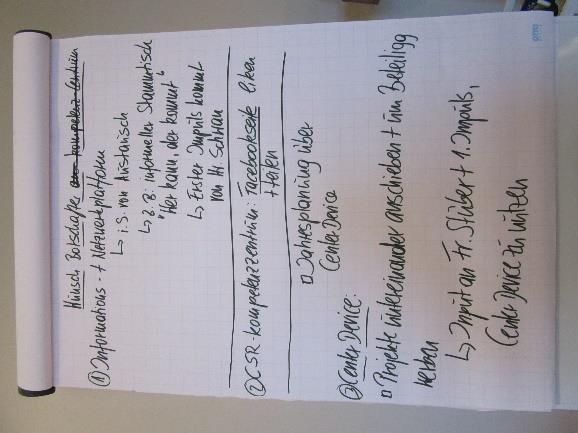 Wünsch Botschafter aus Kompetenz-Centrum
① Informations- + Netzwerkplattform
↳ i.S. von Austausch
↳ z.B. informeller Stammtisch
"Wer kann, der kommt"
↳ Erster Impuls kommt
von Hr.
② CSR-Kompetenzzentrum: Facebookseite liken
+ teilen
③ Center Device: ▫ Jahresplanung über
Center Device
▫ Projekte untereinander anschieben + um Beteiligg
werben
↳ Input an Fr. Stüber + 1. Impuls,
Center Device zu nutzen